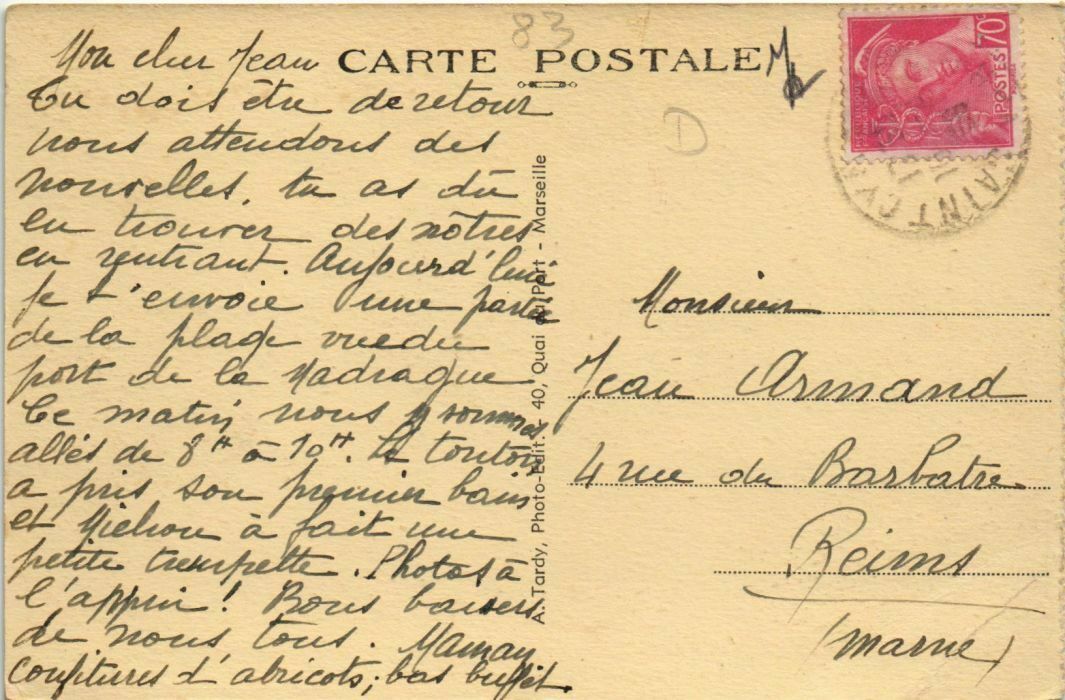 83
CARTE POSTALE
Mon cher Jean
Tu dois être de retour
nous attendons des
nouvelles, tu as dû
en trouver des nôtres
en rentrant. Aujourd'hui
je t'envoie une partie
de la plage vue du
port de la Madrague
Ce matin nous y sommes
allés de 8H à 10H. Le tonton
a pris son premier bain
et Michou à fait une
petite trempette. Photos à
l'appui! Bons baisers
de nous tous. Maman
confitures d'abricots; bas buffet.
A. Tardy, Photo-Edit. - 40, Quai du Port - Marseille
D
70c
POSTES
SAINT CYR
Monsieur
Jean Armand
4 rue du Barbatre
Reims
(Marne)